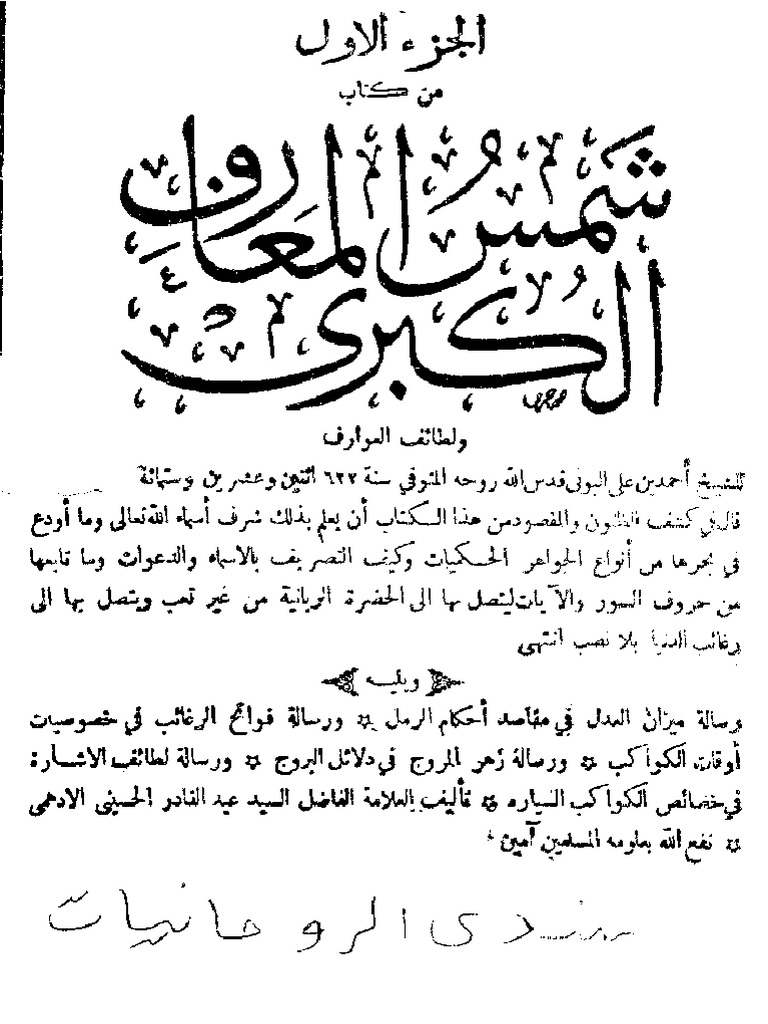 الجزء الاول
من كتاب
شمس المعارف
الكبرى
ولطائف العوارف
للشيخ أحمد بن على البونى قدس الله روحه المتوفي سنة ٦٢٢ اثنين وعشرين وستمائة
قال في كشف الظنون والمقصود من هذا الكتاب أن يعلم بذلك شرف أسماء الله تعالى وما أودع
في بحرها من أنواع الجواهر الحكميات وكيف التصريف بالاسماء والدعوات وما تابعها
من حروف السور والآيات ليتصل بها الى الحضرة الربانية من غير تعب ويتصل بها الى
رغائب الدنيا بلا نصب انتهى
ويليه
رسالة ميزان العدل في مقاصد أحكام الرمل ۞ ورسالة فواتح الرغائب في خصوصيات
أوقات الكواكب ۞ ورسالة زهر المروج في دلائل البروج ۞ ورسالة لطائف الاشارة
في خصائص الكواكب السياره ۞ تأليف العلامة الفاضل السيد عبد القادر الحسينى الادهمى
۞ نفع الله بعلومه المسلمين آمين
الروحانيات